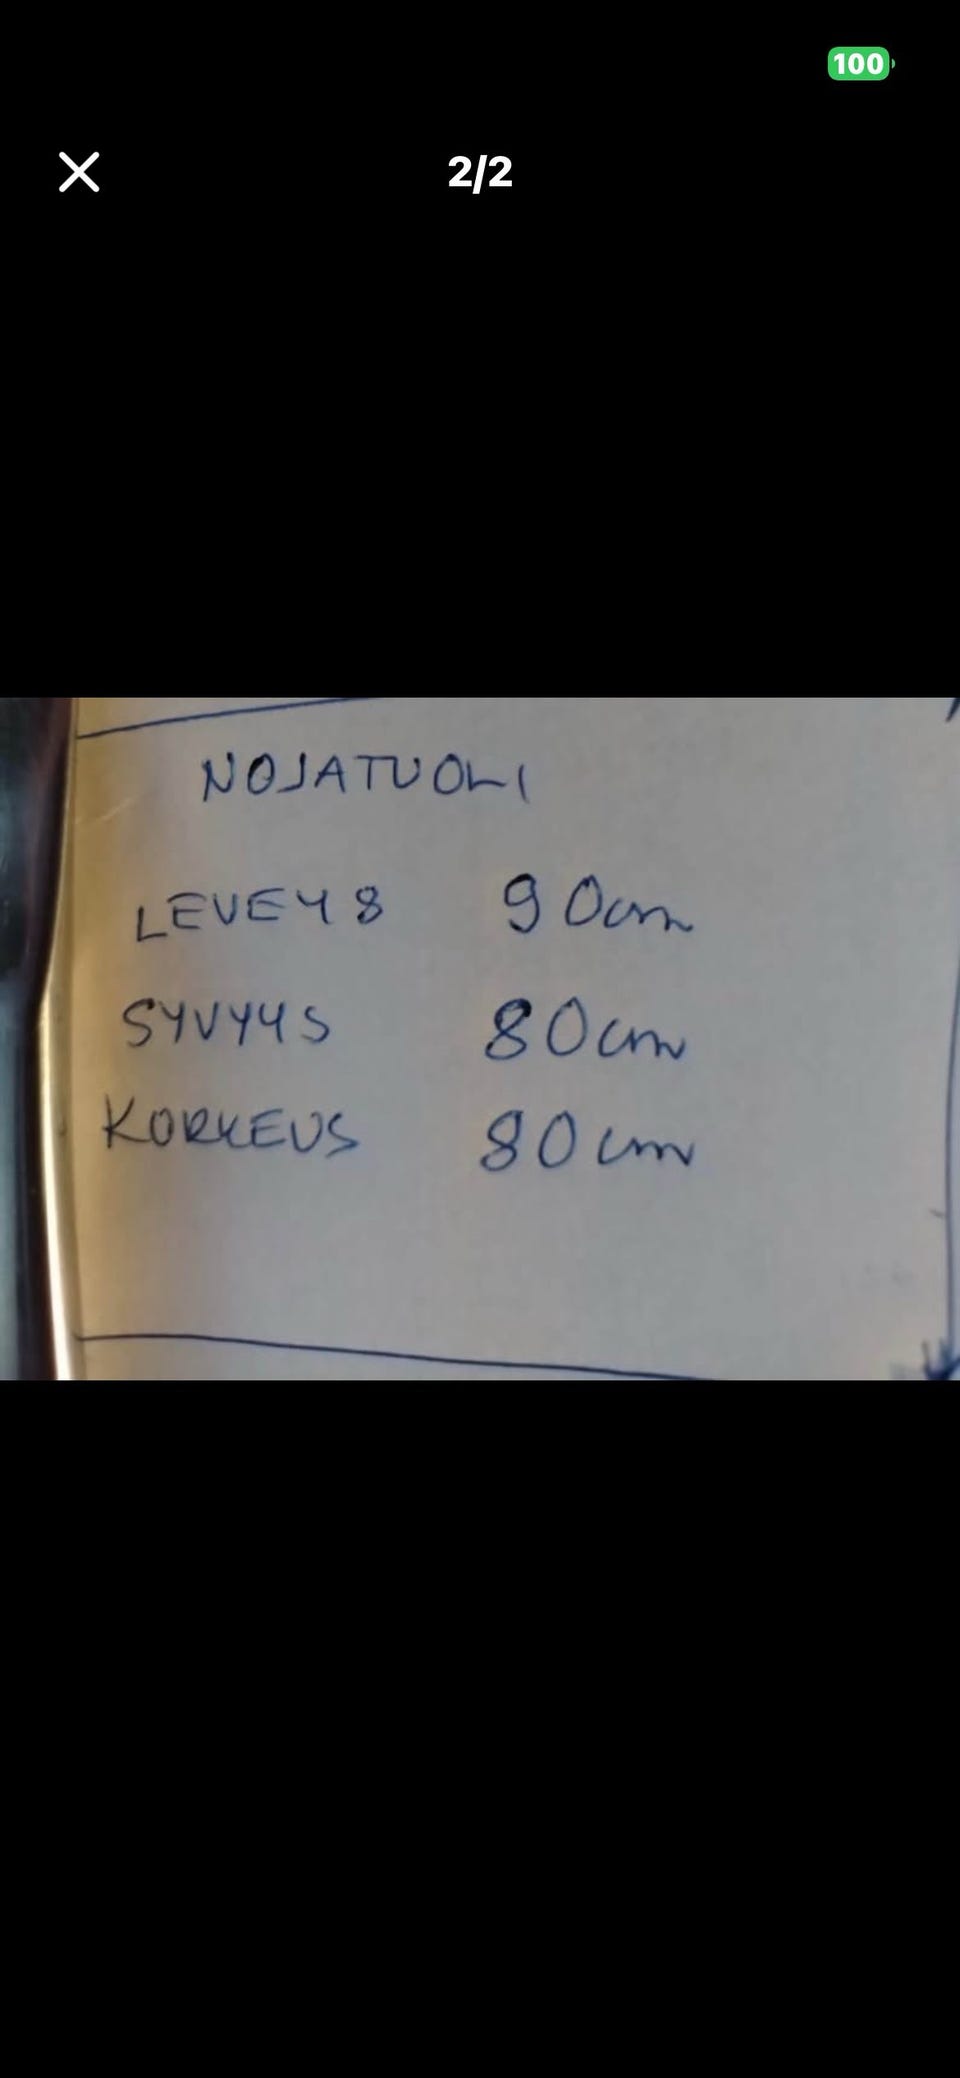 100
2/2
NOJATUOLI
LEVEYS 90cm
SYVYYS 80cm
KORKEUS 80cm